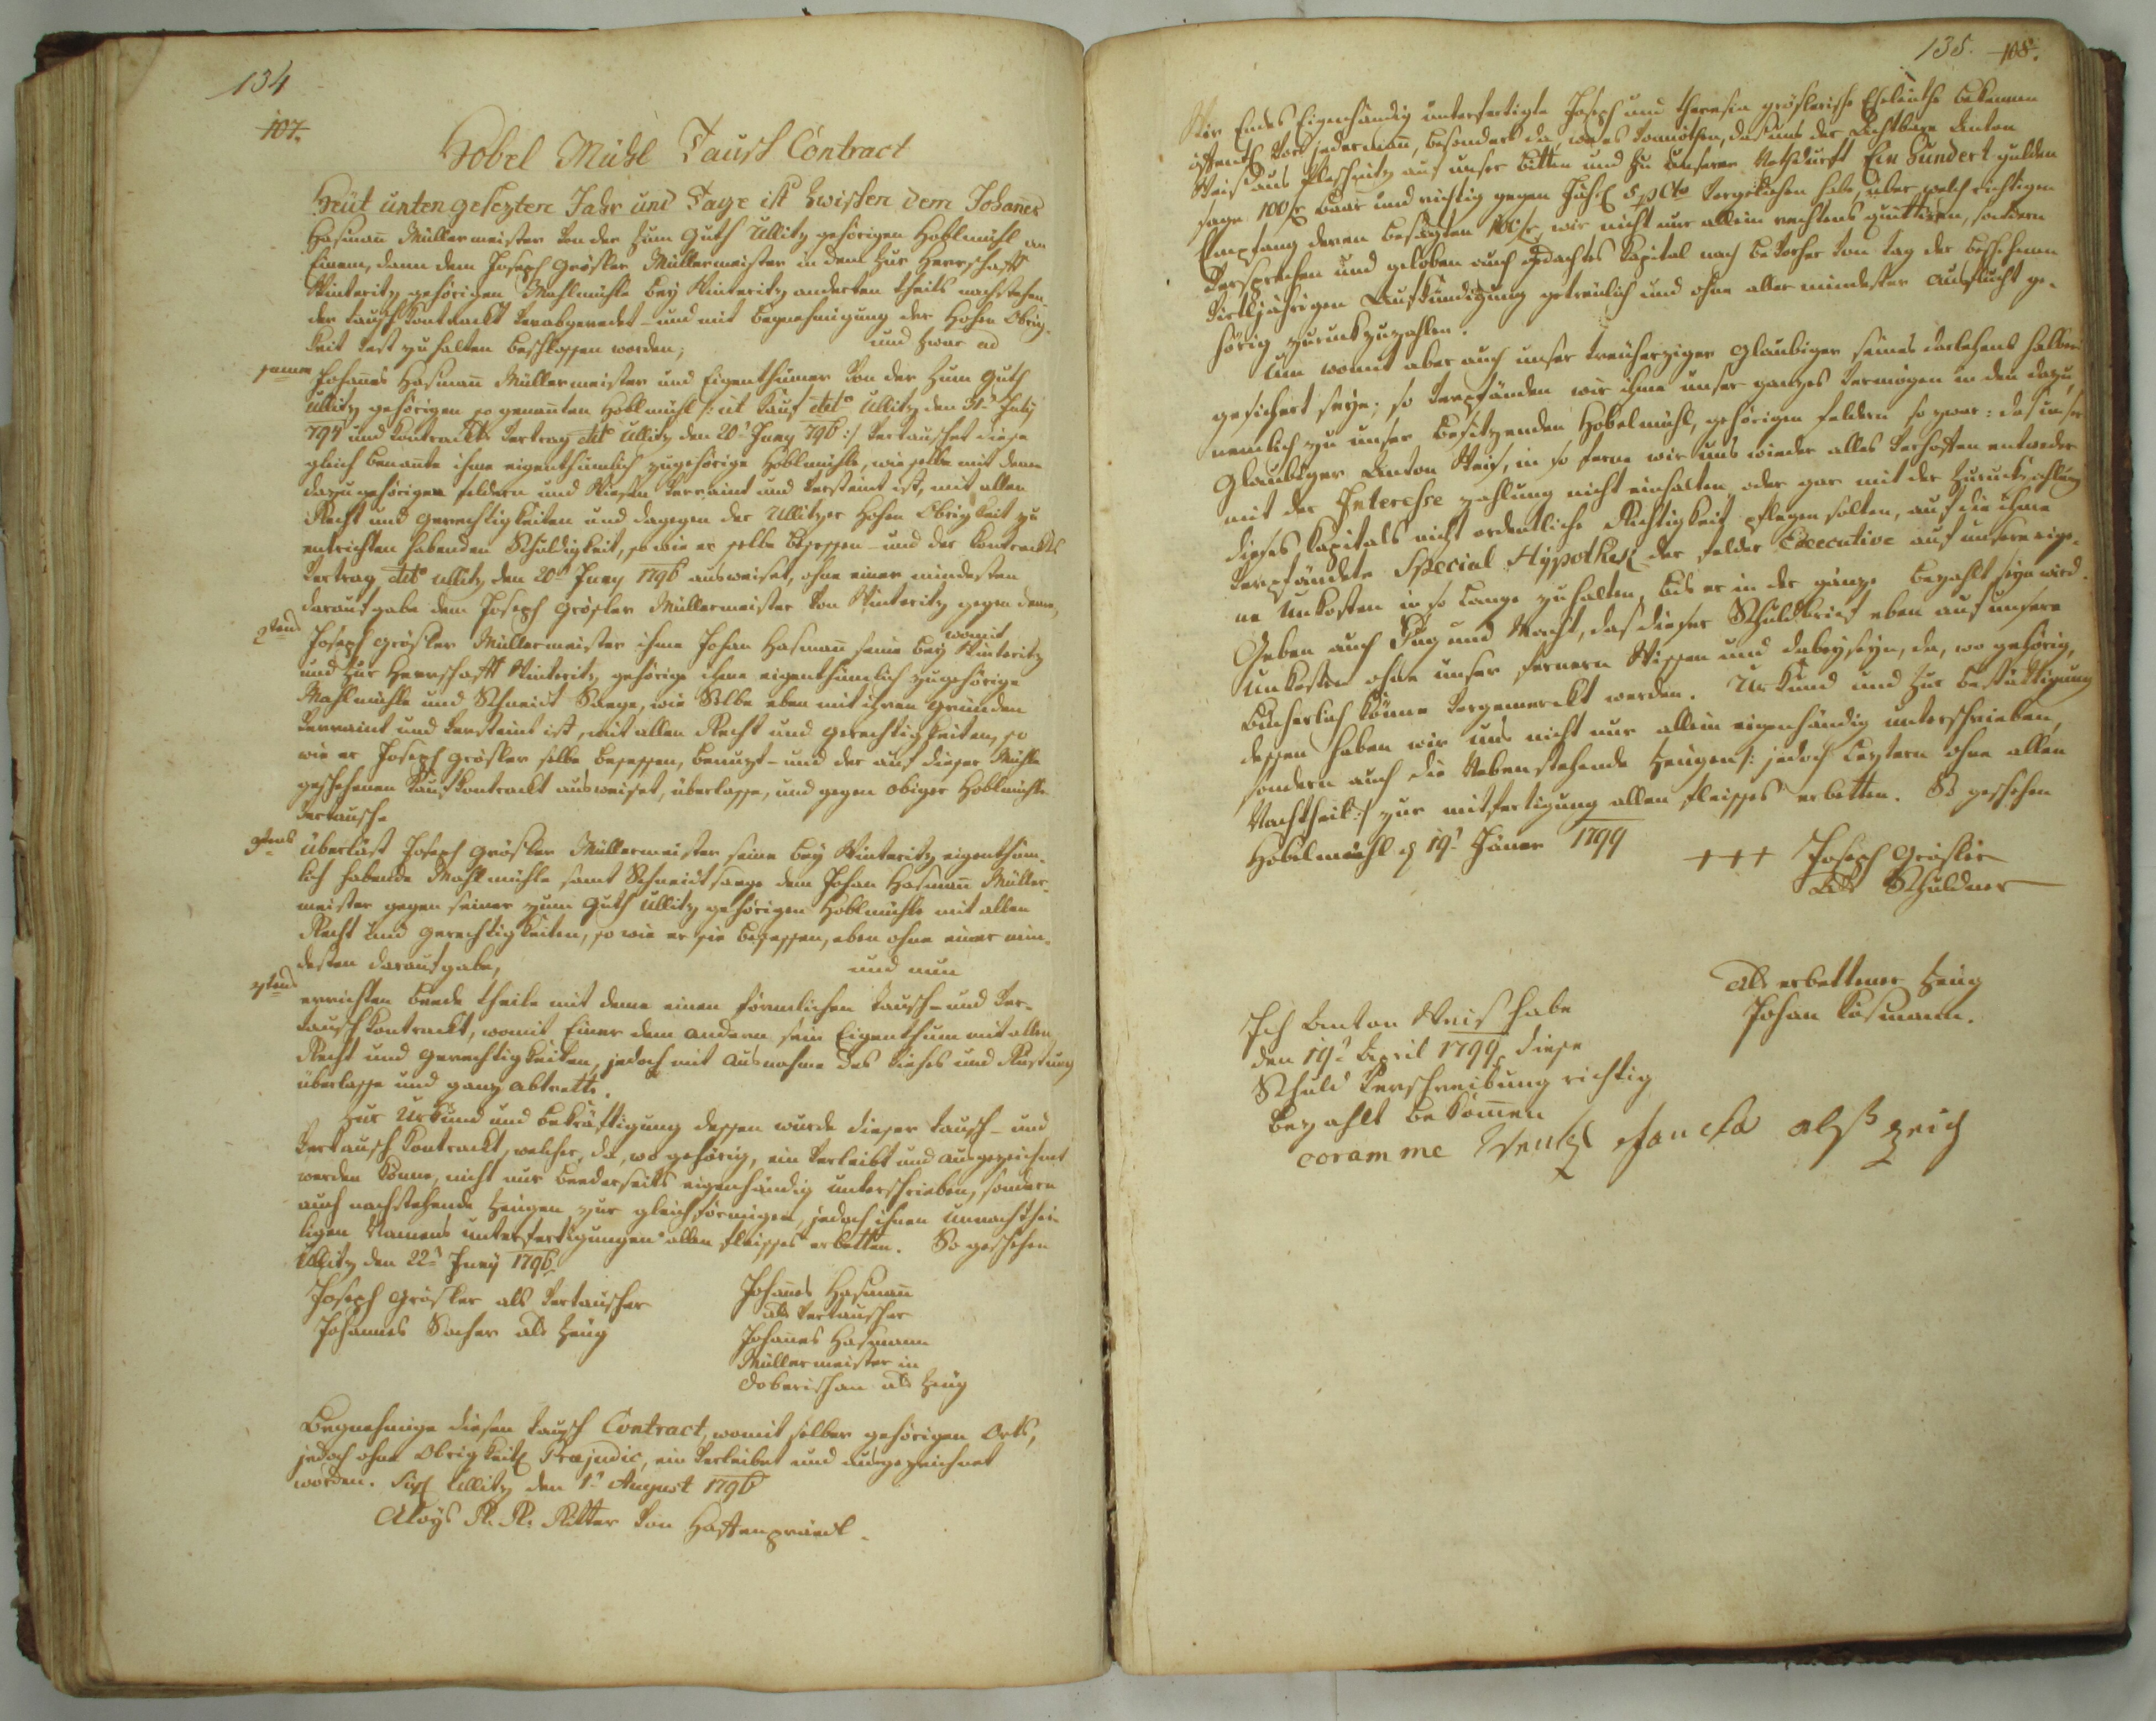 134
107.
Hobel Mühl Tausch Contract
Heüt unten gesezten Jahr und Tage ist zwischen dem Johannes
Hasman̄ Müllermeister von der zum Guth Ullitz gehörigen Hoblmühl an
Einem, dann dem Joseph Grösler Müllermeister in dem zur Herrschafft
Winteritz gehörigen Mahlmühle bey Winteritz anderten theils nachstehen-
der tausch Kontrackt verabgeredet – und mit begnehmigung der Hohen Obrig-
keit vest zu halten beschlossen worden; und zwar ad
primum Johan̄es Hasman̄ Müllermeister und Eigenthümer von der zum Guth
Ullitz gehörigen so genan̄ten Hoblmühl /: ut Kauf dtō Ullitz den 31t July
794 und Kontrackts Vertrag dtō Ullitz den 20t Juny 796 :/ vertauschet diese
gleich benan̄te ihme eigenthümlich zugehörige Hoblmühle, wie selbe mit denen
dazugehörigen feldern und Wiesen verraint und versteint ist, mit allen
Recht und Gerechtigkeiten und dagegen der Ullitzer Hohen Obrigkeit zu
entrichten habenden Schuldigkeit, so wie er selbe besessen – und der Kontrackts
Vertrag dtō Ullitz den 20t Juny 1796 ausweiset, ohne einer mindesten
daraufgabe dem Joseph Grösler Müllermeister von Winteritz gegen deme,
womit
2tens Joseph Grösler Müllermeister ihme Johan Hasman̄ seine bey Winteritz
und zur Herrschafft Winteritz gehörige ihme eigenthümlich zugehörige
Mahlmühle und Schneid Saege, wie Selbe eben mit ihren Gründen
verraint und versteint ist, mit allen Recht und Gerechtigkeiten, so
wie er Joseph Grösler selbe besessen, benuzt – und der auf dieser Mühle
geschehenen Kaufkontrackt ausweiset, überlasse, und gegen obiger Hoblmühle
vertausche
3tens überläst Joseph Grösler Müllermeister seine bey Winteritz eigenthüm-
lich habende Mahlmühle samt Schneidsaege dem Johan Hasman̄ Müller-
meister gegen seiner zum Guth Ullitz gehörigen Hoblmühle mit allen
Recht und Gerechtigkeiten, so wie er sie besessen, eben ohne einer min-
desten daraufgabe, und nun
4tens errichten beede theile mit deme einen förmlichen tausch – und Ver-
tausch Kontrackt, womit Einer dem andern sein Eigenthum mit allen
Recht und Gerechtigkeiten, jedoch mit ausnahme des Viehes und Rüstung
überlasse und ganz abtrette.
Zur Urkund und bekräftigung dessen wurde dieser tausch – und
Vertausch Kontrackt, welcher, da, wo gehörig, ein verleibt und ausgezeichnet
werden kön̄e, nicht nur beederseits eigenhändig unterschrieben, sondern
auch nachstehende Zeugen zur gleichförmigen, jedoch ihnen unnachthei-
ligen Namens unterfertigungen allen fleisses erbetten. So geschehen
Ullitz den 22t Juny 1796
Joseph Grösler als Vertauscher
Johannes Sacher als Zeüg
Johan̄es Hasman̄
als Vertauscher
Johan̄es Hasmann
Müllermeister in
Doberischan als Zeüg
Begnehmige diesen tausch Contract, womit selber gehörigen Orts,
jedoch ohne Obrigkeitl Præjudic, ein verleibet und ausgezeichnet
werden. Sigl Ullitz den 1t August 1796
Aloÿs R. R. Ritter von
135. 108.
Wir Endes Eigenhändig unterfertigte Joseph und Theresia Gröslerische Eheleüthe bekennen
öfentl vor jederman̄, besonders da, wo es von nöthen, das uns der Achtbare Anton
Weis aus Pleschnitz auf unser bitten und zu unserer Nothdurft Ein Hundert gulden
sage 100 fr baar und richtig gegen Jährl 5 p Cto vorgeliehen habe, über welch richtigen
Empfang deren besagten 100 fr, wir nicht nur allein rechtens quittiren, sondern
versprechen und geloben auch gedachtes Kapital nach bevorher von tag der beschehenen
viertljährigen Aufkündigung getreülich und ohne aller mindester Ausflucht ge-
hörig zuruckzuzahlen.
Um womit aber auch unser treüherziger Glaubiger seines darlehens halber
gesichert seÿe; so verpfänden wir ihme unser ganzes vermögen in den dazu,
nemlich zu unser besitzenden Hobelmühl, gehörigen feldern so zwar: das unser
Glaubiger Anton Weis, in so ferne wir uns wieder alles verhoffen entweder
mit der Interesse zahlung nicht einhalten, oder gar mit der zuruckzahlung
dieses Kapitals nicht ordentliche Richtigkeit pflegen solten, auf die ihme
verpfändete Special Hÿpothek der felder Executive auf unsere eige-
ne Unkosten in so lange zu halten, bis er in der gänze bezahlt seyn wird.
Geben auch Fug und Macht, das dieser Schuldbrief eben auf unsere
Unkosten ohne unser fernern Wissen und dabeyseÿn, da, wo gehörig,
bücherlich kön̄e vorgemerckt werden. Urkund und zur bestättigung
dessen haben wir uns nicht nur allein eigenhändig unterschrieben,
sondern auch die Nebenstehende Zeügen /: jedoch leztern ohne allen
Nachtheil :/ zur mitfertigung allen fleisses erbetten. So geschehen
Hobelmühl d 19t Jäner 1799
+++ Joseph Grösler
als Schuldner
als erbettener Zeug
Johan Kosmann.
Ich Anton Weis habe
den 19t April 1799 diese
Schuld verschreibung richtig
bezahlt bekom̄en
coram me Wentzl Janeka alß zeich